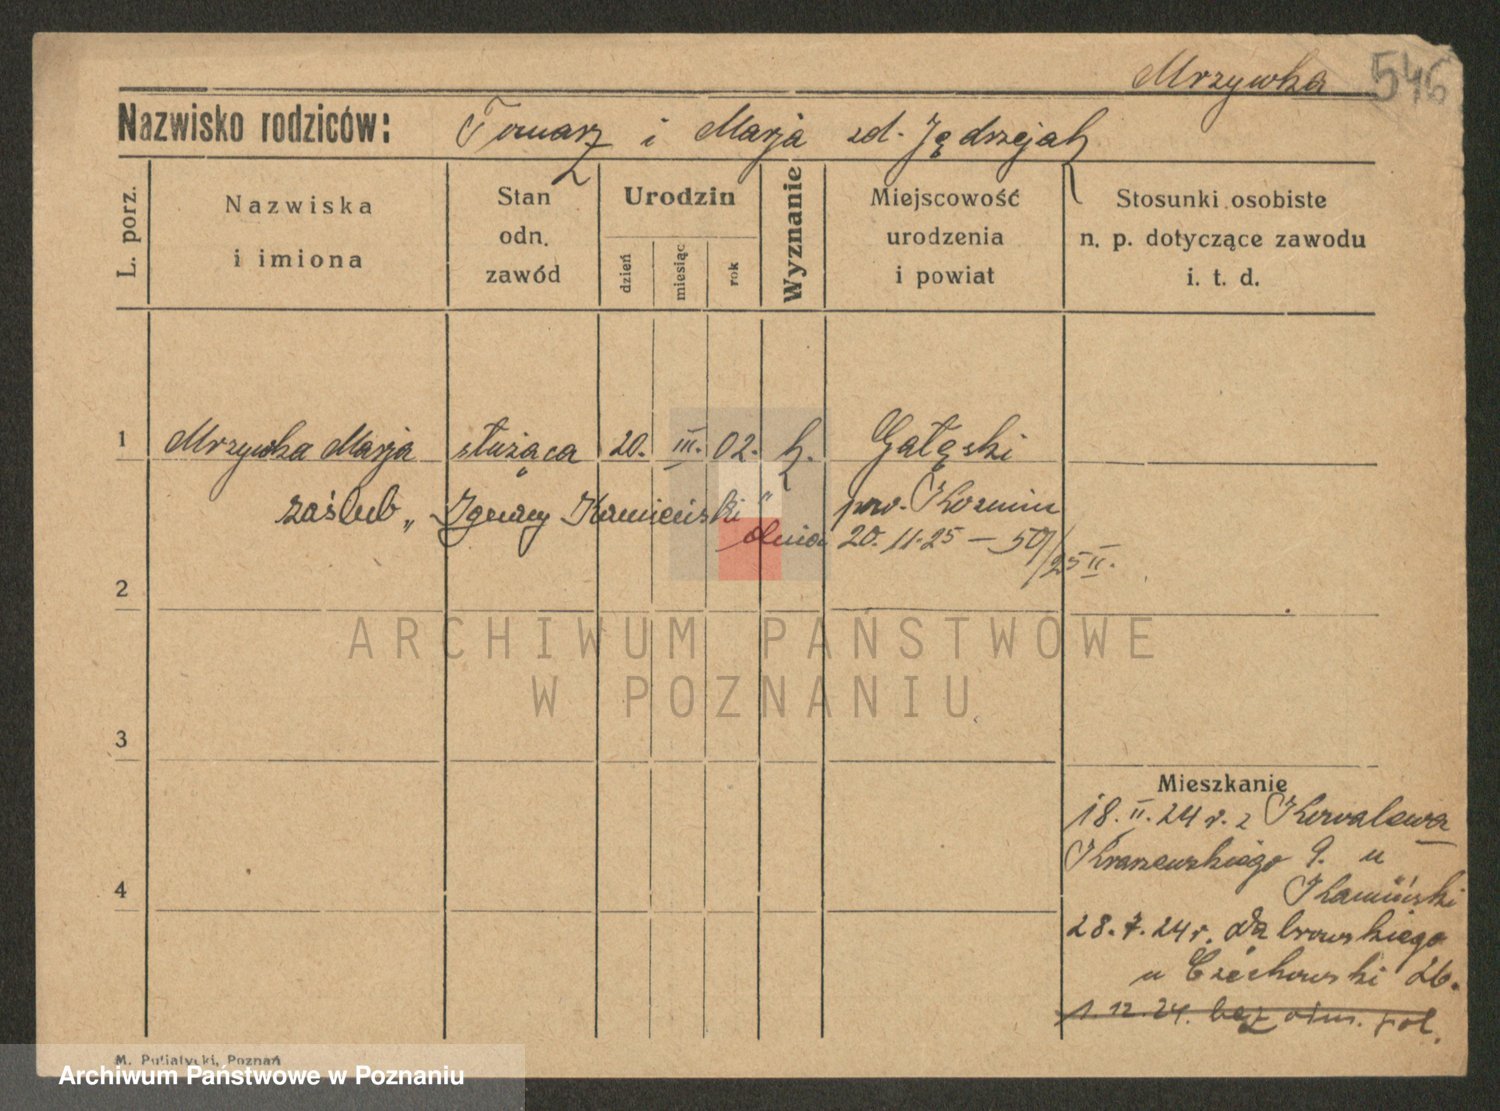 Mrzywka 546
Nazwisko rodziców: Tomasz i Marja zd. Jędrzejak
L. porz.
Nazwiska i imiona
Stan odn. zawód
Urodzin
dzień
miesiąc
rok
Wyznanie
Miejscowość urodzenia i powiat
Stosunki osobiste n. p. dotyczące zawodu i. t. d.
1 Mrzywka Marja służąca 20. III. 02. k. Gałęski
zaślub „Ignacy Kamieński" pow. Koźmin
dnia 20.11.25 — 50/25 II.
2
3
4
Mieszkanie
18. II. 24 r. z Kowalewa
Kraszewskiego 9. u
Kamiński
28.7.24 r. Dąbrowskiego
u Czechowski 26.
1.12.24. bez
M. Putiatycki, Poznań
ARCHIWUM PAŃSTWOWE
W POZNANIU
Archiwum Państwowe w Poznaniu